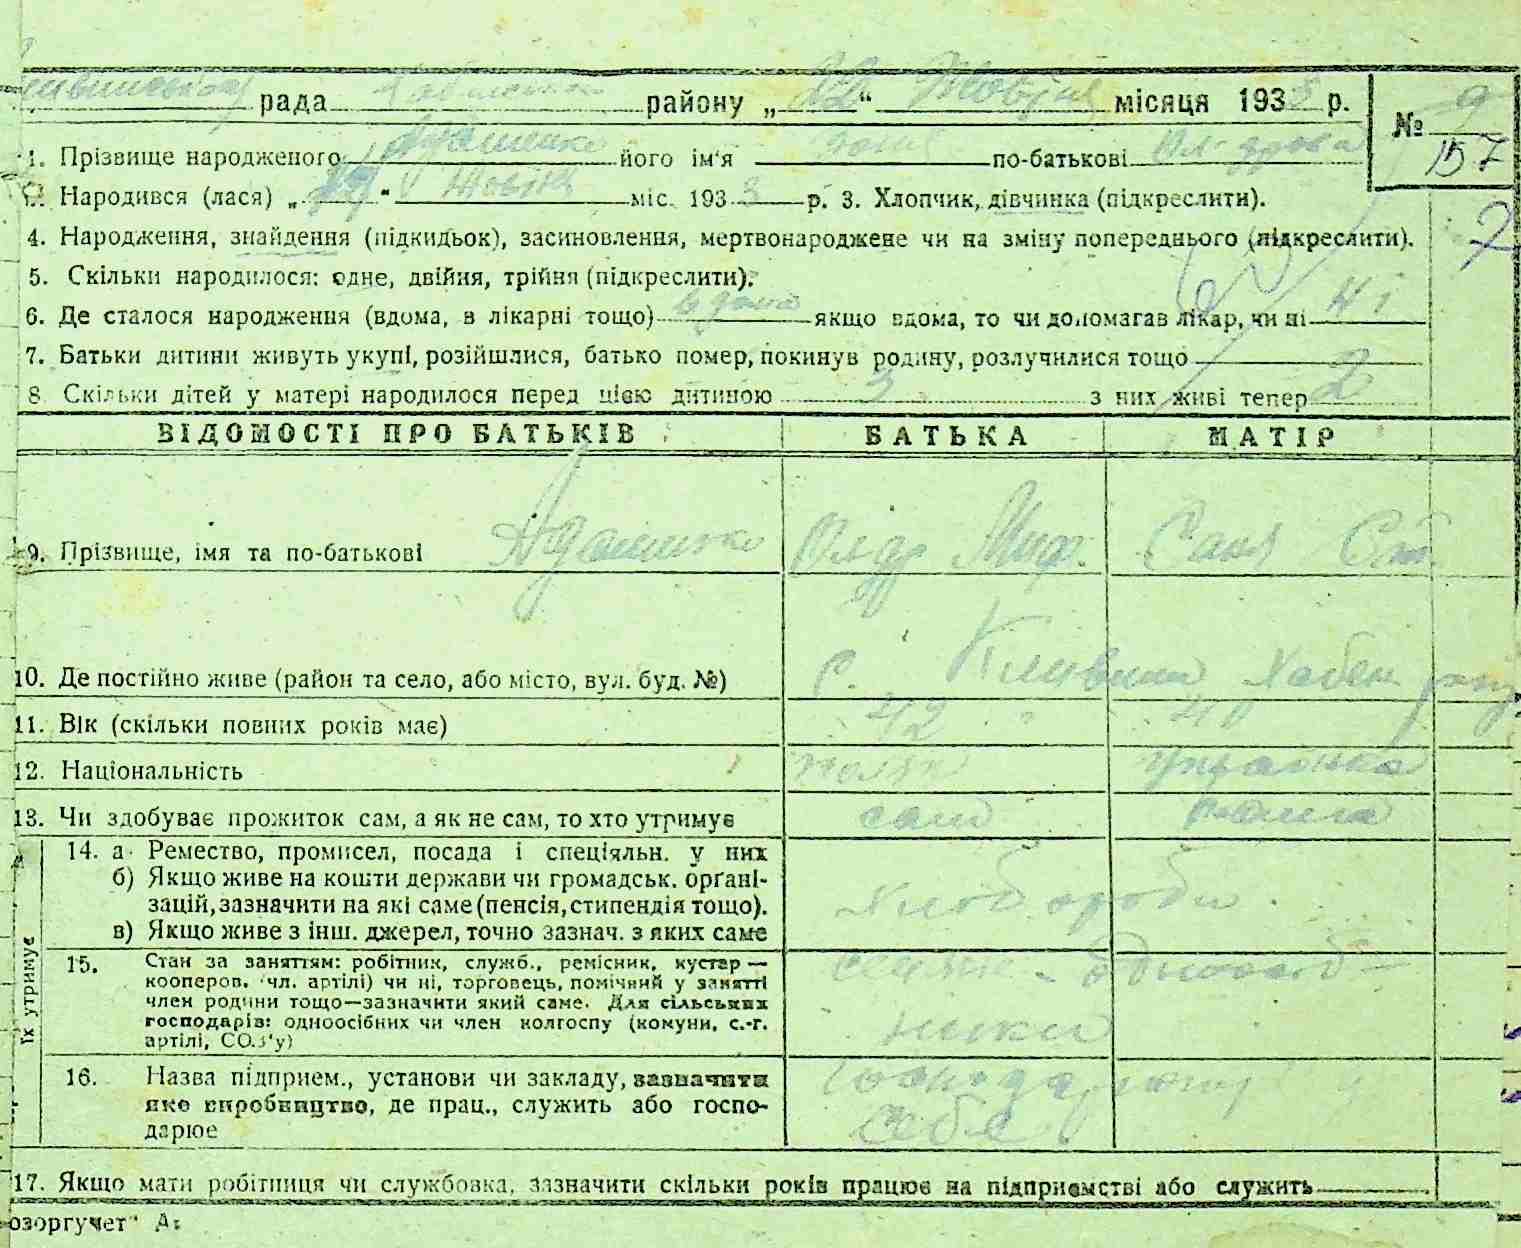 рада району „22“ Жовтня місяця 1933 р. № 9
157
1. Прізвище народженого Адаменко його ім'я по-батькові Ол-дрова
2. Народився (лася) „ “ Жовтн міс. 1933 р. 3. Хлопчик, дівчинка (підкреслити).
7
4. Народження, знайдення (підкидьок), засиновлення, мертвонароджене чи на зміну попереднього (підкреслити).
5. Скільки народилося: одне, двійня, трійня (підкреслити).
6. Де сталося народження (вдома, в лікарні тощо) вдома якщо вдома, то чи допомагав лікар, чи ні ні
7. Батьки дитини живуть укупі, розійшлися, батько помер, покинув родину, розлучилися тощо
8 Скільки дітей у матері народилося перед цією дитиною 3 з них живі тепер 2
ВІДОМОСТІ ПРО БАТЬКІВ БАТЬКА МАТІР
9. Прізвище, імя та по-батькові Адаменко Олдр Миф. Саня Ст.
10. Де постійно живе (район та село, або місто, вул. буд. №) С. Кливини Хабен
11. Вік (скільки повних років має) 42 40
12. Національність поляк Українка
13. Чи здобуває прожиток сам, а як не сам, то хто утримує сам
їх утримує
14. а Ремество, промисел, посада і спеціяльн. у них
б) Якщо живе на кошти держави чи громадськ. органі-
зацій, зазначити на які саме (пенсія, стипендія тощо).
в) Якщо живе з інш. джерел, точно зазнач. з яких саме
Хлібороби.
15. Стан за заняттям: робітник, служб., ремісник, кустар—
кооперов. чл. артілі) чи ні, торговець, помічний у занятті
член родини тощо—зазначити який саме. Для сільських
господарів: одноосібних чи член колгоспу (комуни, с.-г.
артілі, СОЗ'у)
селяни - одноосіб-
ники
16. Назва підприєм., установи чи закладу, зазначити
яке виробництво, де прац., служить або госпо-
дарює
себе
17. Якщо мати робітниця чи службовка, зазначити скільки років працює на підприємстві або служить
озоргучет"